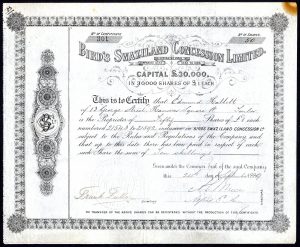 No. OF CERTIFICATE
No. OF SHARES
BIRD'S SWAZILAND CONCESSION
LIMITED.
CAPITAL £30,000,
IN 30000 SHARES OF £1 EACH
This is to Certify that Edmund
of 13 George Street Hanover Square London
is the Proprietor of Fifty Shares of £1 each
numbered 21543 to 21592 inclusive in BIRD'S SWAZILAND CONCESSION LD
subject to the Rules and Regulations of the Company and
that up to this date there has been paid in respect of
each Share the sum of Ten shillings
Given under the Common Seal of the said Company
this day of 1889
Frank
NO TRANSFER OF THE ABOVE SHARES CAN BE REGISTERED WITHOUT THE PRODUCTION OF THIS CERTIFICATE.